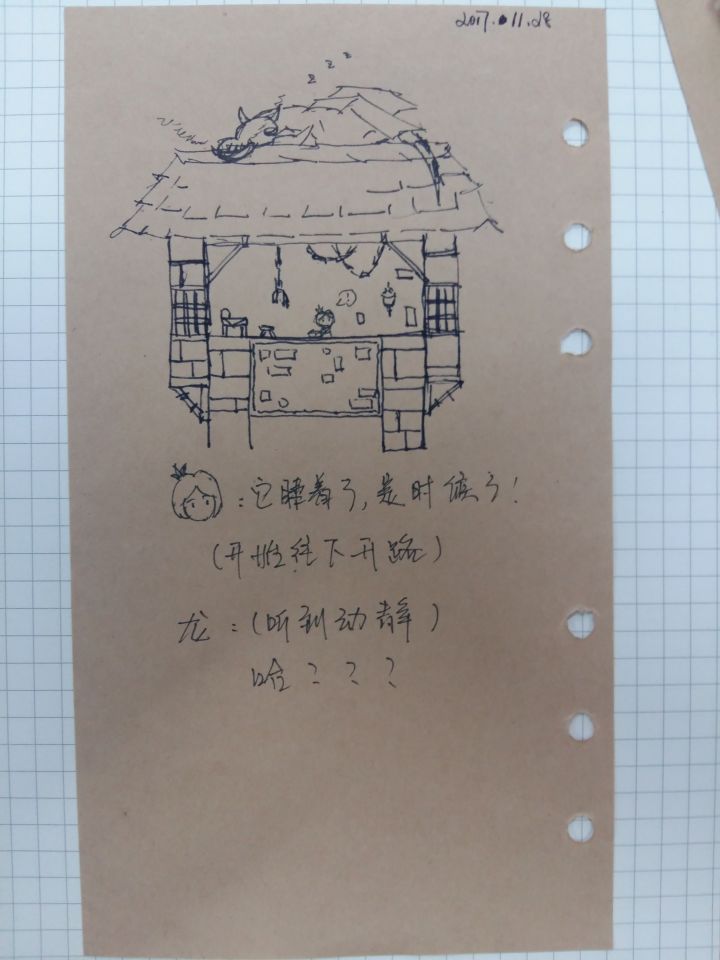 2017.11.28
z z z
:它睡着了,是时候了!
(开始往下开路)
龙:(听到动静)
哈???